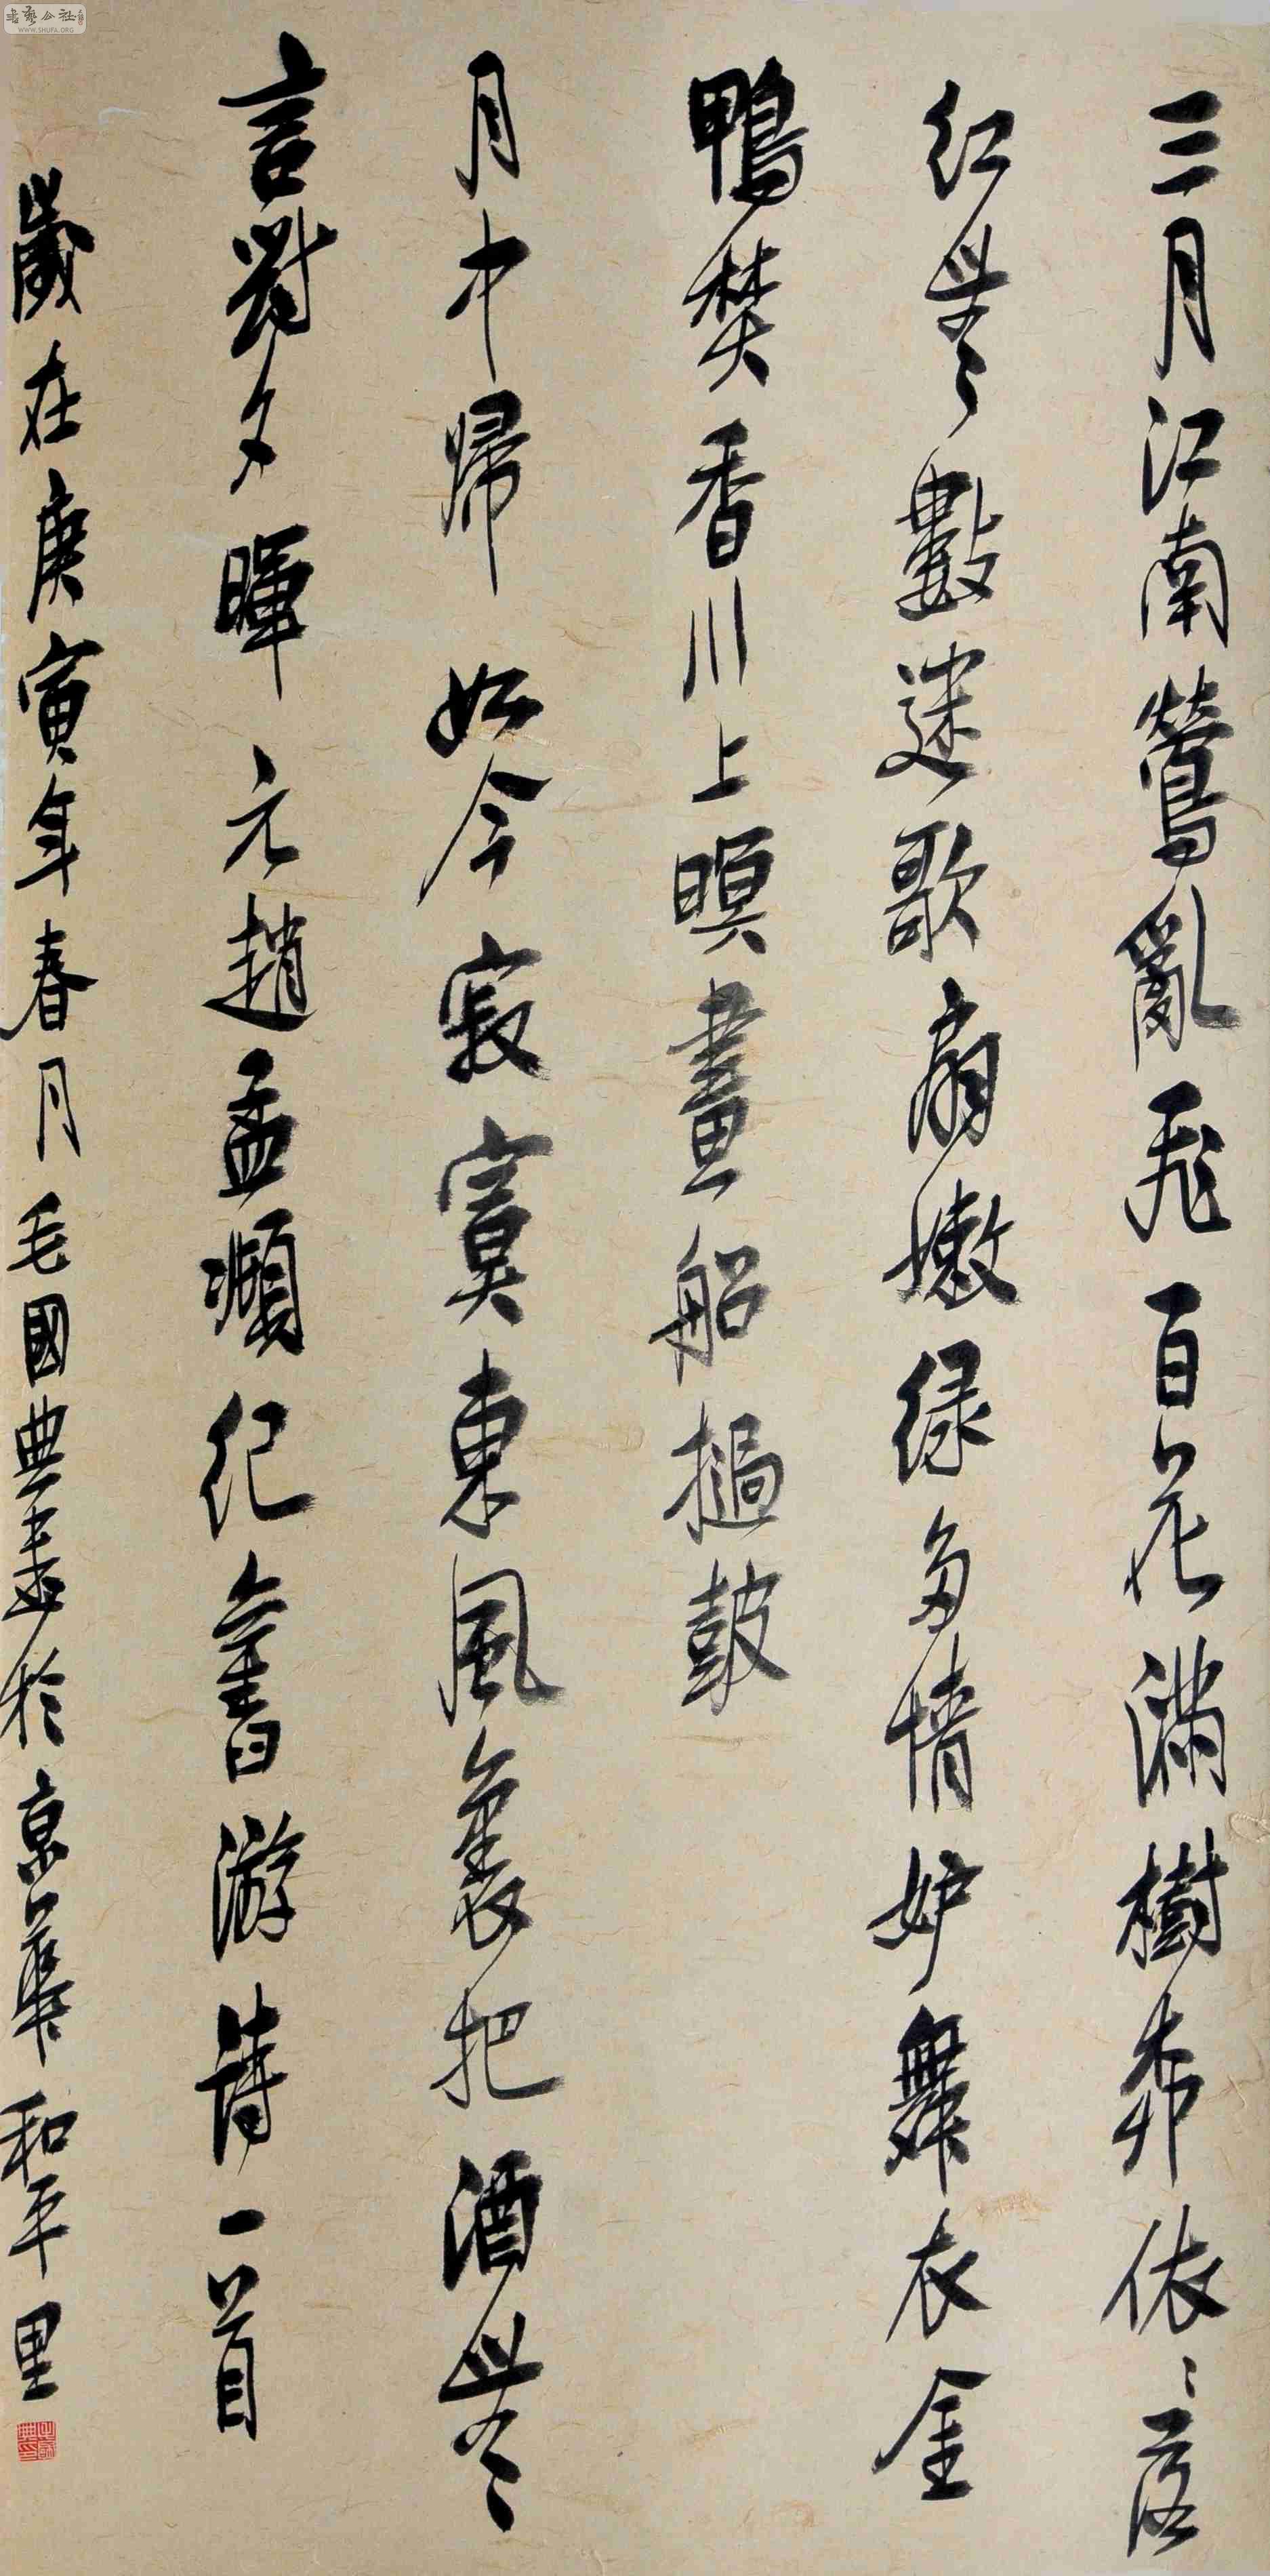 三月江南鶯亂飛百花滿樹柳依〻落
紅無數迷歌扇嫩綠多情妒舞衣金
鴨焚香川上暝畫船撾鼓
月中歸如今寂寞東風裏把酒無
言對夕暉元趙孟頫紀舊游詩一首
歲在庚寅年春月毛國典書於京華和平里
書藝公社
WWW.SHUFA.ORG